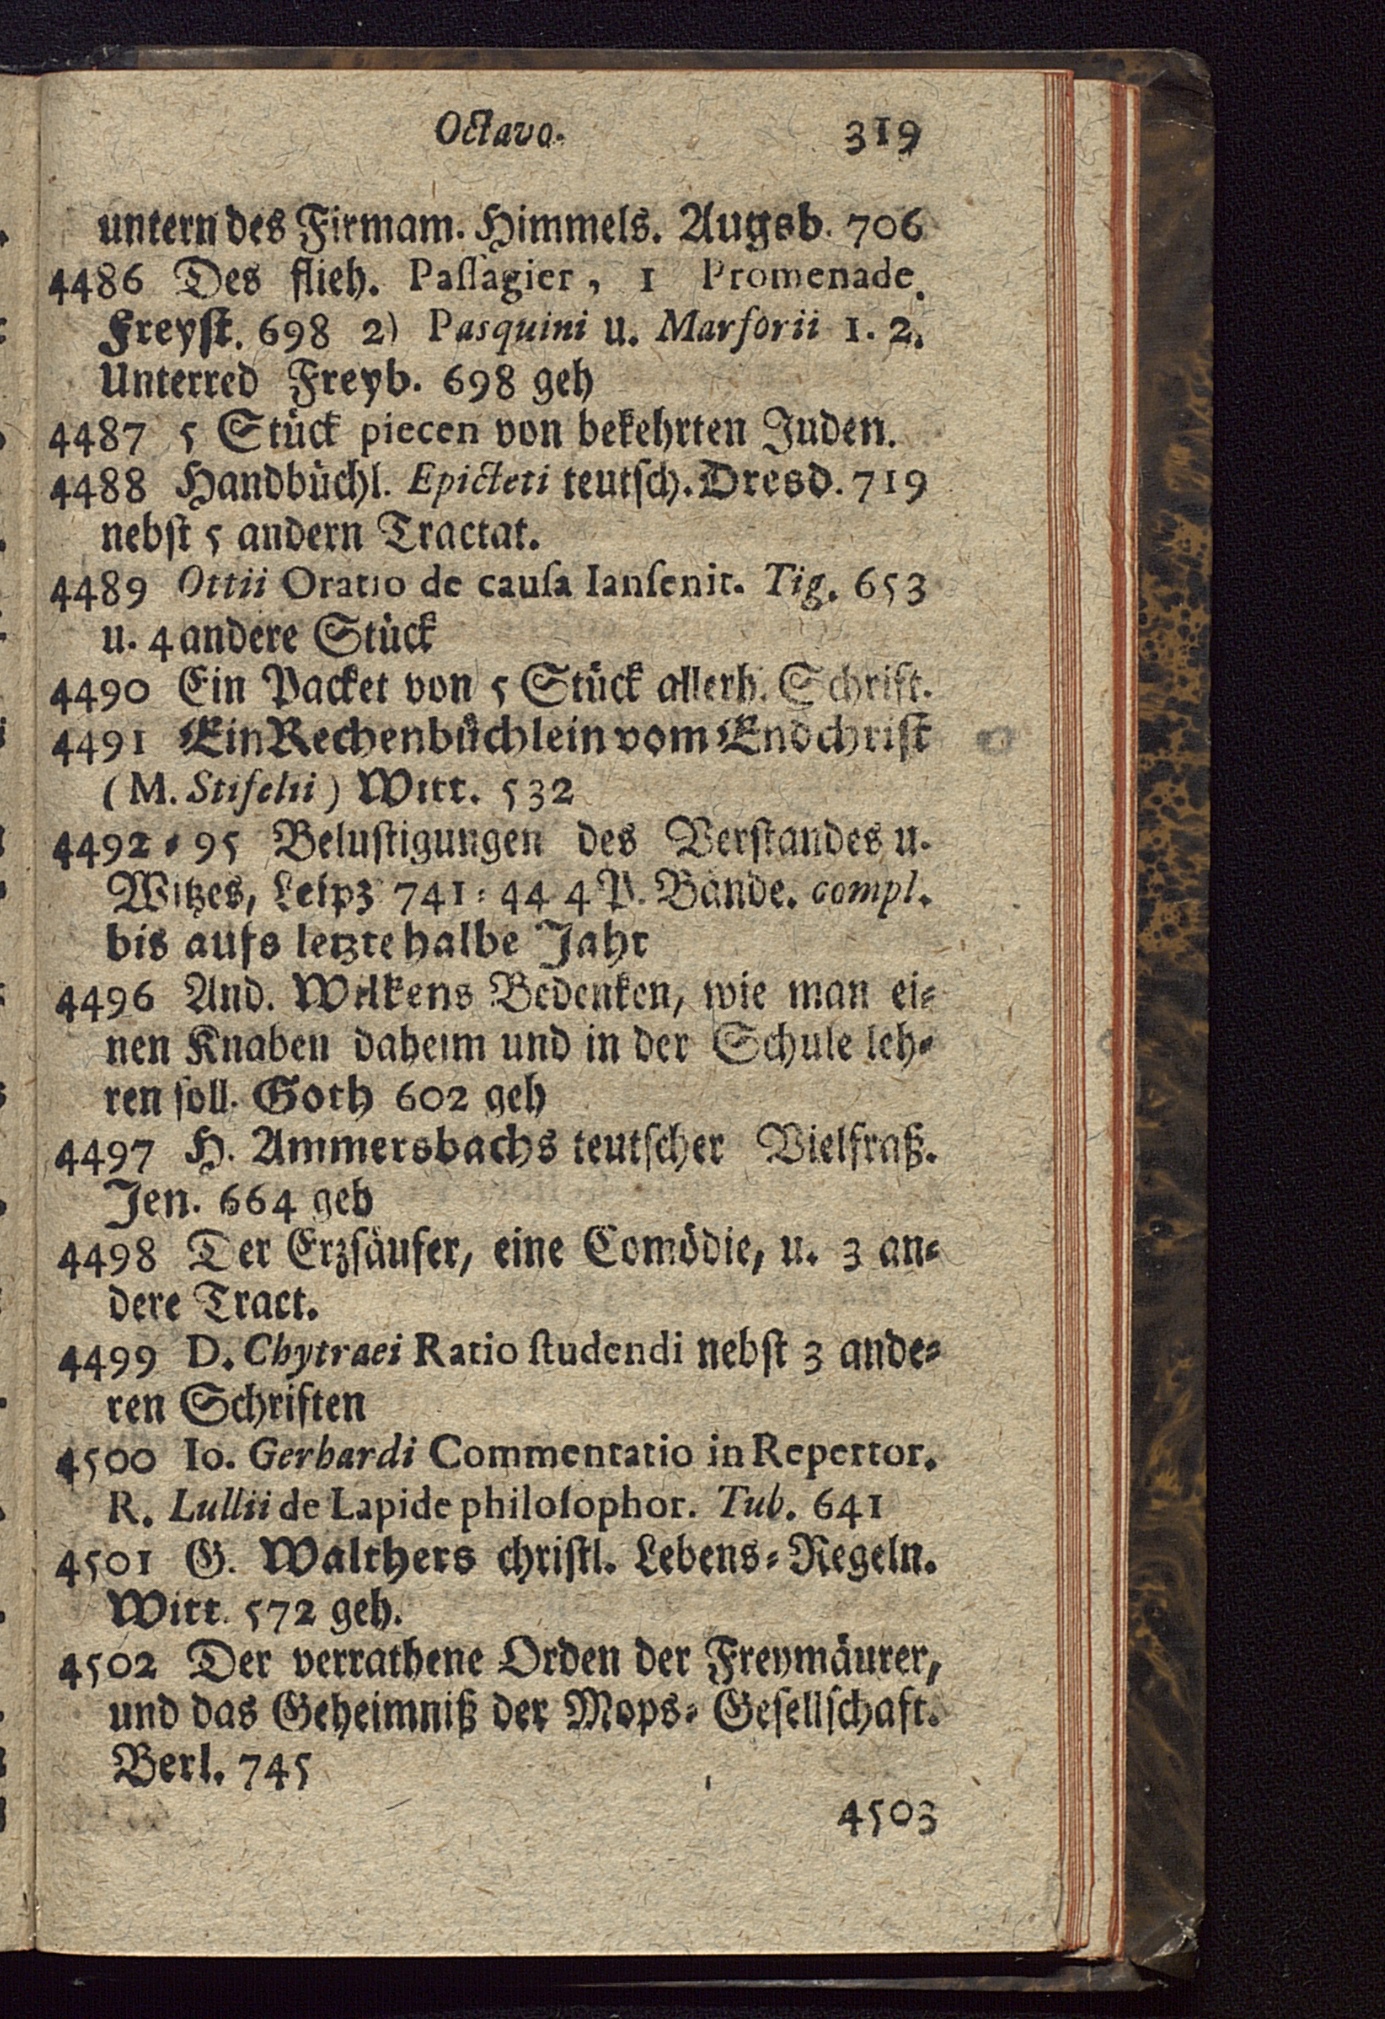 Octavo. 319
untern des Firmam. Himmels. Augsb. 706
4486 Des flieh. Paſſagier, 1 Promenade.
Freyſt. 698 2) Pasquini u. Marforii 1. 2.
Unterred Freyb. 698 geh
4487 5 Stück piecen von bekehrten Juden.
4488 Handbüchl. Epicteti teutſch. Dresd. 719
nebſt 5 andern Tractat.
4489 Ottii Oratio de cauſa Ianſenit. Tig. 653
u. 4 andere Stück
4490 Ein Packet von 5 Stück allerh. Schrift.
4491 Ein Rechenbüchlein vom Endchriſt
(M. Stifelii) Witt. 532
4492 = 95 Beluſtigungen des Verſtandes u.
Witzes, Leipz 741 = 44 4 P. Bände. compl.
bis aufs letzte halbe Jahr
4496 And. Wilkens Bedenken, wie man ei=
nen Knaben daheim und in der Schule leh=
ren ſoll. Goth 602 geh
4497 H. Ammersbachs teutſcher Vielfraß.
Jen. 664 geb
4498 Der Erzſäufer, eine Comödie, u. 3 an=
dere Tract.
4499 D. Chytraei Ratio ſtudendi nebſt 3 ande=
ren Schriften
4500 Io. Gerhardi Commentatio in Repertor.
R. Lullii de Lapide philoſophor. Tub. 641
4501 G. Walthers chriſtl. Lebens = Regeln.
Witt. 572 geh.
4502 Der verrathene Orden der Freymäurer,
und das Geheimniß der Mops = Geſellſchaft.
Berl. 745
4503